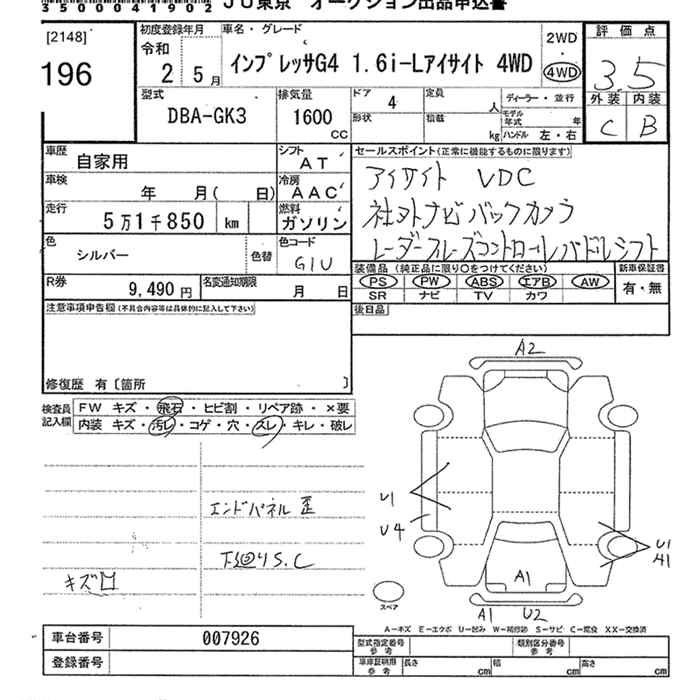 3500041902 JU東京 オークション出品申込書
[2148]
196
初度登録年月
令和
2 5月
車名・グレード
インプレッサG4 1.6i-Lアイサイト 4WD
2WD
4WD
評価点
3.5
外装 内装
C B
型式
DBA-GK3
排気量
1600
CC
ドア
4
形状
定員
人
積載
kg
ディーラー・並行
モデル年式 年
ハンドル 左・右
車歴
自家用
シフト
AT
車検
年 月( 日)
冷房
AAC
走行
5万1千850 km
燃料
ガソリン
色
シルバー
色替
色コード
G1U
R券
9,490円
名変通知期限
月 日
セールスポイント(正常に機能するものに限ります)
アイサイト VDC
社外ナビバックカメラ
レーダークルーズコントロールパドルシフト
装備品(純正品に限り○をつけてください)
PS PW ABS エアB AW
SR ナビ TV カワ
新車保証書
有・無
注意事項申告欄(不具合内容等は具体的に記入して下さい)
後日品
修復歴 有〔箇所 〕
検査員記入欄
FW キズ・飛石・ヒビ割・リペア跡・×要
内装 キズ・汚レ・コゲ・穴・スレ・キレ・破レ
エンドパネル 歪
下回りS.C
キズ凹
A2
U1
U4
A1
U1
A1
A1 U2
スペア
A-キズ E-エクボ U-凹み W-補修跡 S-サビ C-腐食 XX-交換済
車台番号
007926
登録番号
型式指定番号
参考
類別区分番号
参考
車庫証明用
参考
長さ cm
幅 cm
高さ cm